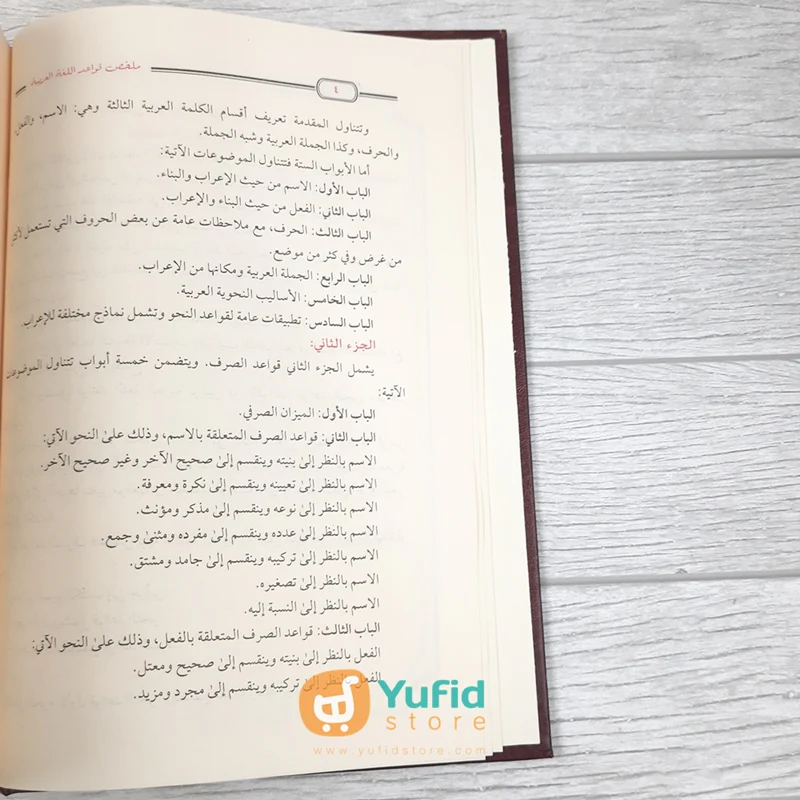 ملخص قواعد اللغة العربية
٤
وتتناول المقدمة تعريف أقسام الكلمة العربية الثالثة وهي: الاسم، والفعل،
والحرف، وكذا الجملة العربية وشبه الجملة.
أما الأبواب الستة فتتناول الموضوعات الآتية:
الباب الأول: الاسم من حيث الإعراب والبناء.
الباب الثاني: الفعل من حيث البناء والإعراب.
الباب الثالث: الحرف، مع ملاحظات عامة عن بعض الحروف التي تستعمل لأكثر
من غرض وفي كثر من موضع.
الباب الرابع: الجملة العربية ومكانها من الإعراب.
الباب الخامس: الأساليب النحوية العربية.
الباب السادس: تطبيقات عامة لقواعد النحو وتشمل نماذج مختلفة للإعراب.
الجزء الثاني:
يشمل الجزء الثاني قواعد الصرف. ويتضمن خمسة أبواب تتناول الموضوعات
الآتية:
الباب الأول: الميزان الصرفي.
الباب الثاني: قواعد الصرف المتعلقة بالاسم، وذلك علىٰ النحو الآتي:
الاسم بالنظر إلىٰ بنيته وينقسم إلىٰ صحيح الآخر وغير صحيح الآخر.
الاسم بالنظر إلىٰ تعيينه وينقسم إلىٰ نكرة ومعرفة.
الاسم بالنظر إلىٰ نوعه وينقسم إلىٰ مذكر ومؤنث.
الاسم بالنظر إلىٰ عدده وينقسم إلىٰ مفرده ومثنىٰ وجمع.
الاسم بالنظر إلىٰ تركيبه وينقسم إلىٰ جامد ومشتق.
الاسم بالنظر إلىٰ تصغيره.
الاسم بالنظر إلىٰ النسبة إليه.
الباب الثالث: قواعد الصرف المتعلقة بالفعل، وذلك علىٰ النحو الآتي:
الفعل بالنظر إلىٰ بنيته وينقسم إلىٰ صحيح ومعتل.
الفعل بالنظر إلىٰ تركيبه وينقسم إلىٰ مجرد ومزيد.
Yufid
store
www.yufidstore.com